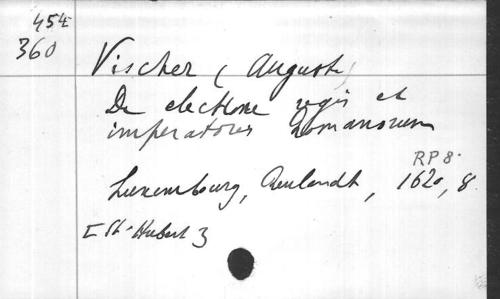 454
360
Vischer (August)
De electione regis et
imperatoris Romanorum
RP 8.
Luxembourg, Reulandt, 1620, 8.
[St-Hubert]